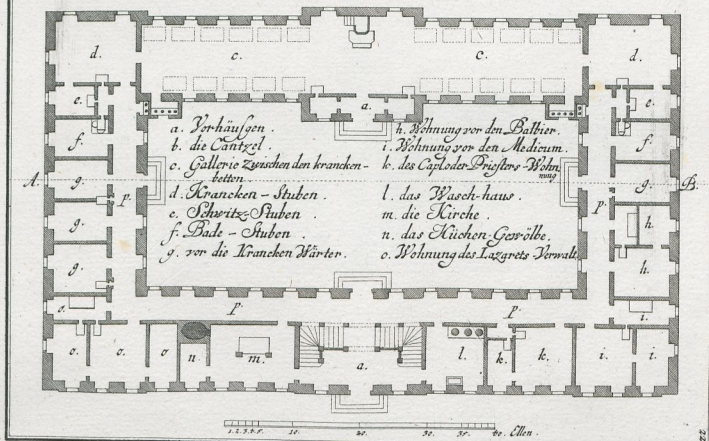 d.
c.
c.
d.
e.
a.
e.
f.
f.
g.
g.
A.
B.
p.
p.
g.
h.
g.
h.
o.
i.
p.
p.
o.
o.
o
n.
m.
a.
l.
k.
k.
i.
i.
a. Vorhäusgen.
b. die Cantzel.
c. Gallerie zwischen den krancken-
betten.
d. Krancken-Stuben.
e. Schwitz-Stuben.
f. Bade-Stuben.
g. vor die Krancken Wärter.
h. Wohnung vor den Balbier.
i. Wohnung vor den Medicum.
k. des Capl oder Priesters-Wohn
nung
l. das Wasch-haus.
m. die Kirche.
n. das Küchen-Gewölbe.
o. Wohnung des Lazarets-Verwalt.
1. 2. 3. 4. 5. 10. 20. 30. 35. 40. Ellen.
22